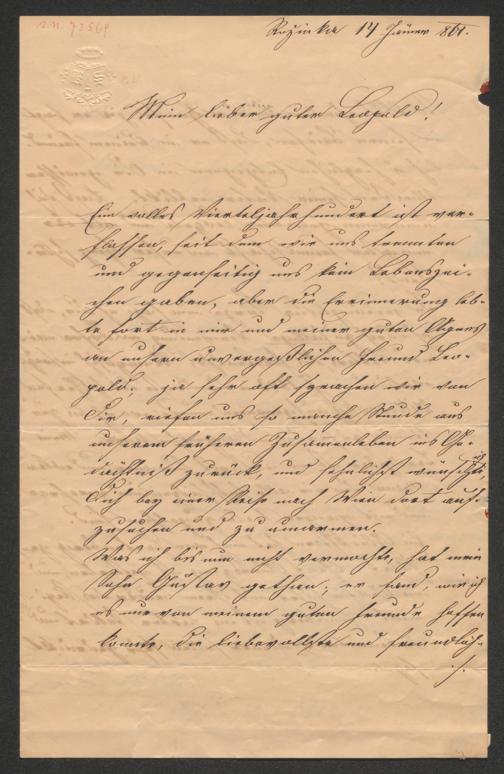 I.N. 72569
Rožinka 14 Jänner 861.
Mein lieber guter Leopold!
Ein volles Vierteljahrhundert ist ver-
flossen, seit dem wir uns trennten
und gegenseitig uns kein Lebenszei-
chen gaben, aber die Erinnerung leb-
te fort in mir und meiner guten Agnes
an unsern unvergeßlichen Freund Leo-
pold; ja sehr oft sprachen wir von
Dir, riefen uns so manche Stunde aus
unserem früheren Zusamenleben ins Ge-
dächtniß zurück, und sehnlichst wünschte ich
Dich bey einer Reise nach Wien dort auf-
zusuchen und zu umarmen.
Was ich bis nun nicht vermochte, hat mein
Sohn Gustav gethan; er fand, wie ich
es nur von meinem guten Freunde hoffen
konnte, die liebevollste und freundlich-
./.